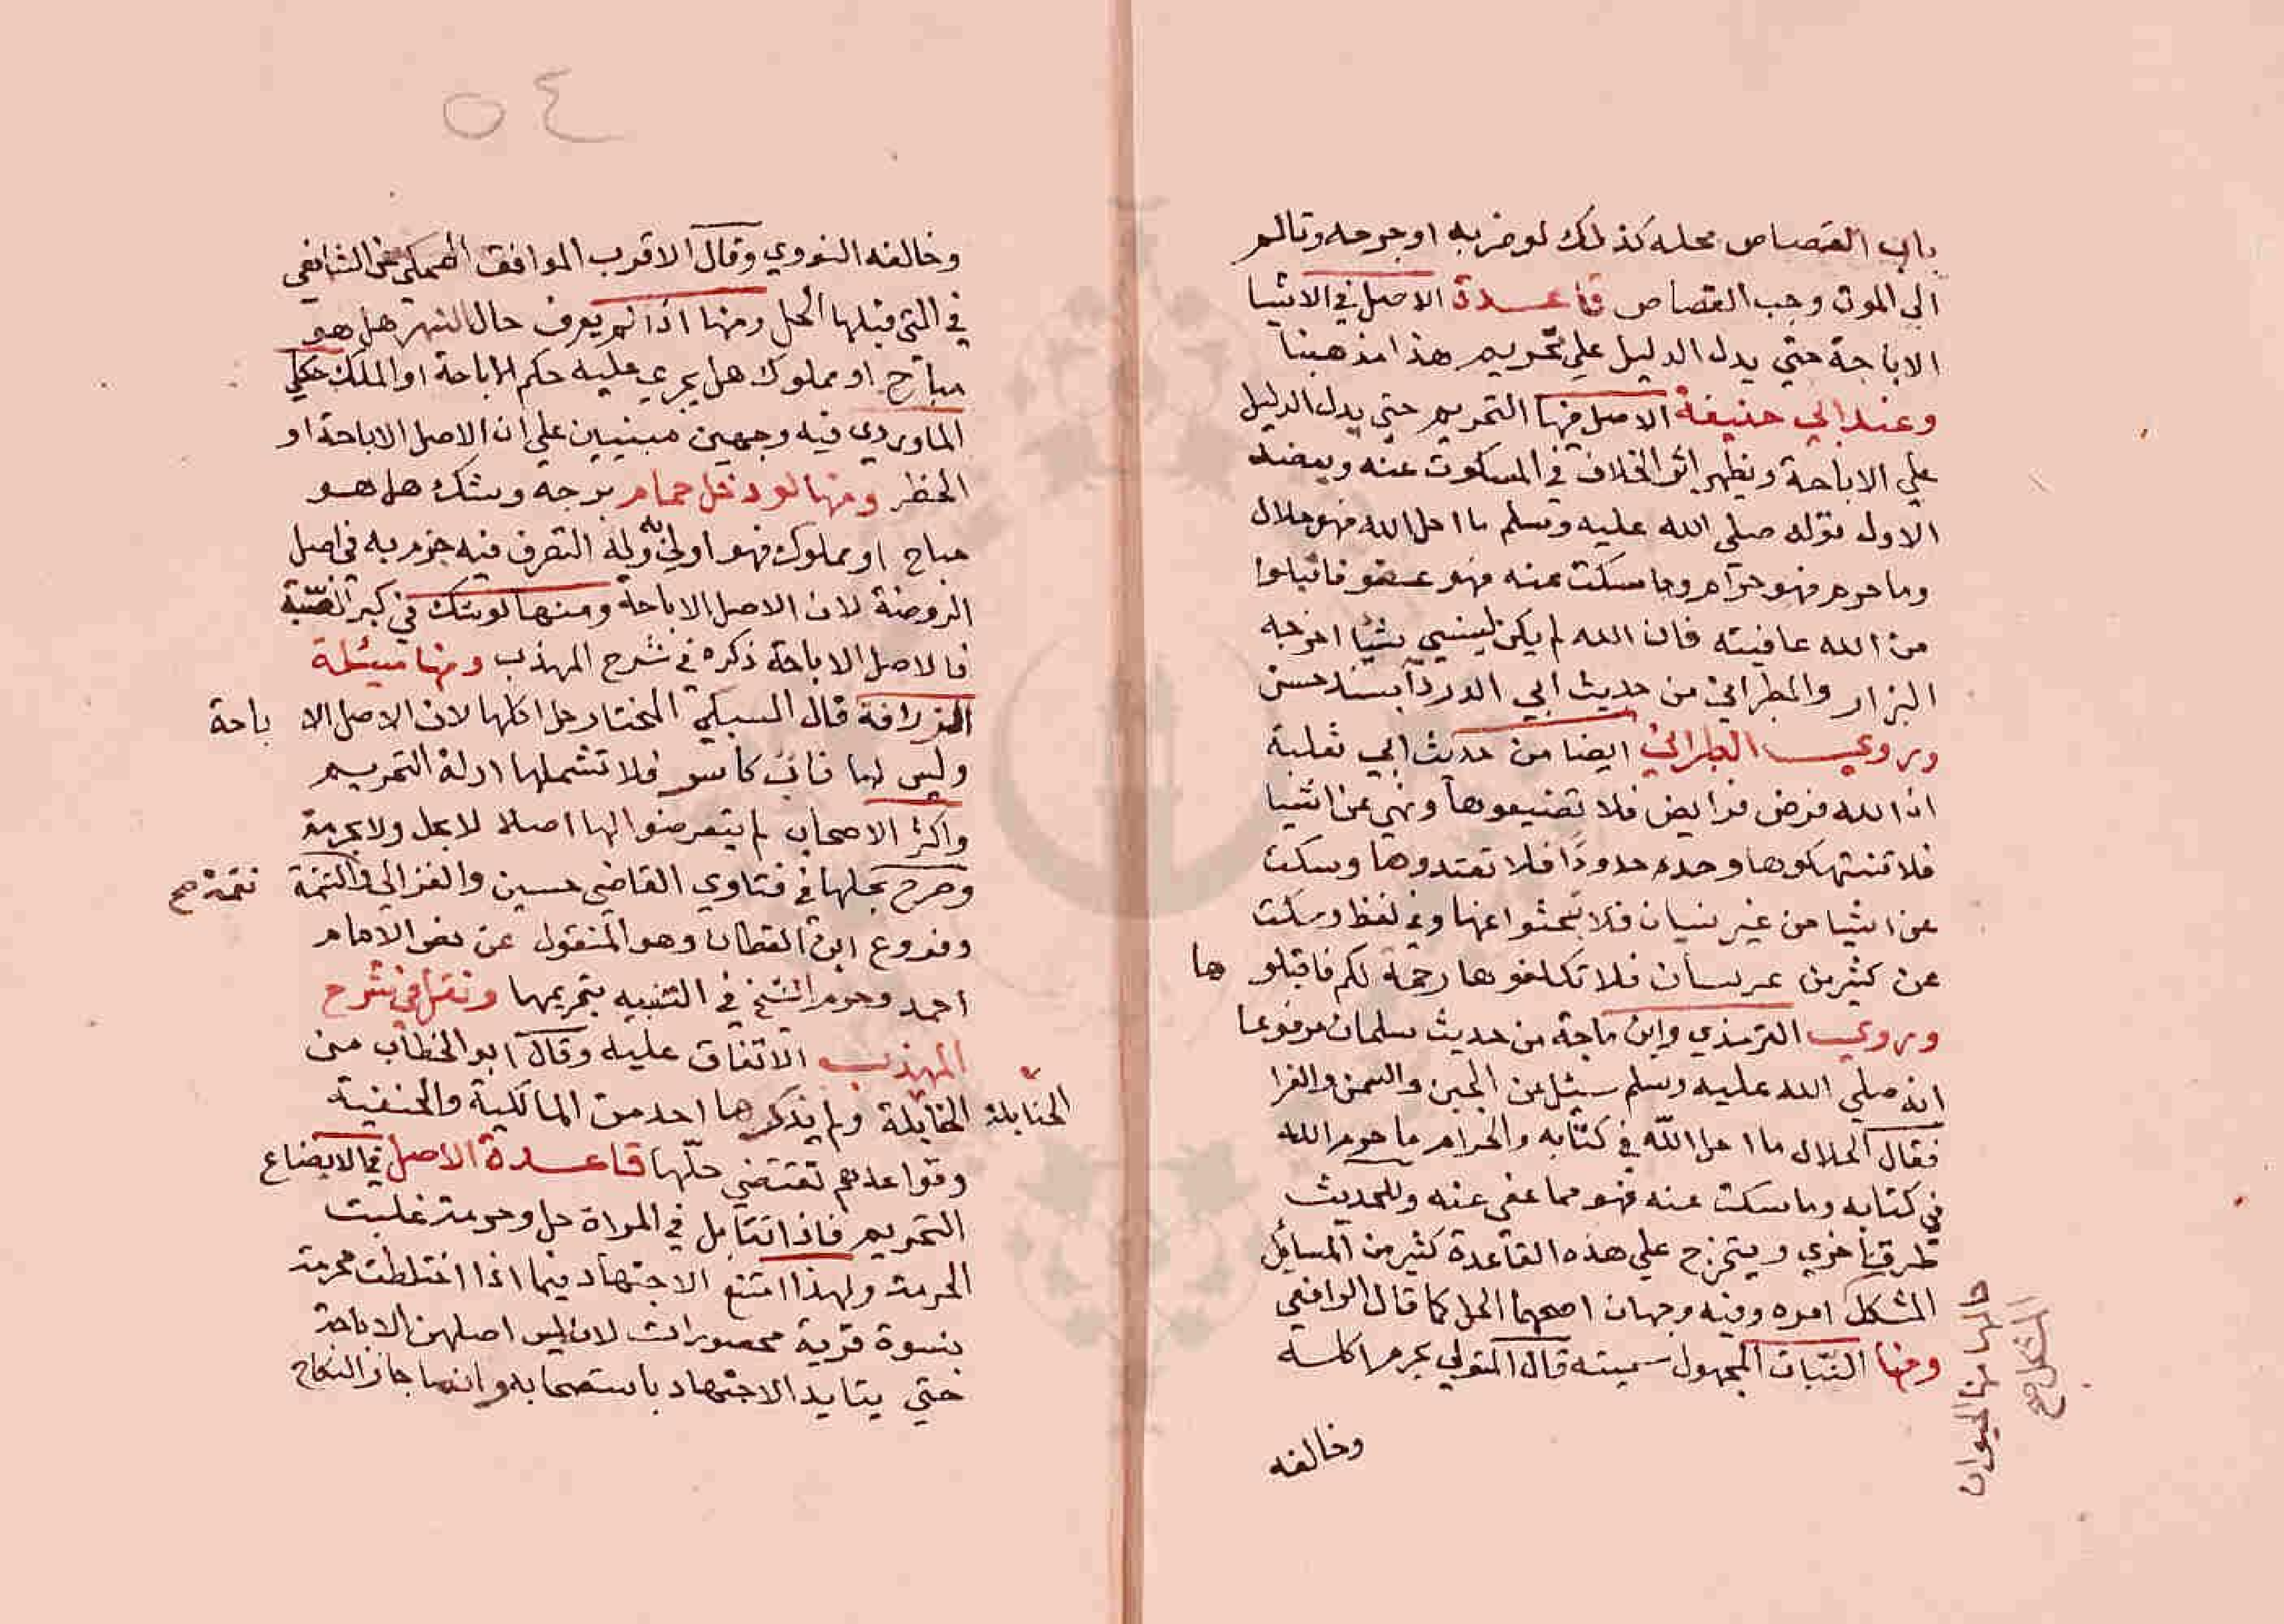 باب القصاص محله كذلك لو ضربه او جرحه وتالم
الي الموت وجب القصاص قاعدة الاصل في الاشيا
الاباحة حتي يدل الدليل علي تحريم هذا مذهبنا
وعند ابي حنيفة الاصل فيها التحريم حتي يدل الدليل
علي الاباحة ويظهر اثر الخلاف في المسكوت عنه ويعضد
الاول قوله صلي الله عليه وسلم ما احل الله فهو حلال
وما حرم فهو حرام وما سكت عنه فهو عفو فاقبلوا
من الله عافيته فان الله لم يكن لينسي شيا اخرجه
البزار والطبراني من حديث ابي الدردآ بسند حسن
وروي الطبراني ايضا من حديث ابي ثعلبة
ان الله فرض فرايض فلا تضيعوها ونهي عن اشيا
فلا تنتهكوها وحد حدودًا فلا تعتدوها وسكت
عن اشيا من غير نسيان فلا تبحثوا عنها وفي لفظ وسكت
عن كثير من غير نسيان فلا تكلفوها رحمة لكم فاقبلو ها
وروي الترمذي وابن ماجة من حديث سلمان مرفوعا
انه صلي الله عليه وسلم سئل عن الجبن والسمن والفرا
فقال الحلال ما احل الله في كتابه والحرام ما حرم الله
في كتابه وما سكت عنه فهو مما عفي عنه وللحديث
طرق اخري ويتخرج علي هذه القاعدة كثير من المسائل
المشكل امره وفيه وجهان اصحهما الحل كما قال الرافعي
ومنها النبات المجهول سميته قال المتولي يحرم اكله
وخالفه
حالها منها الحيوان
المشكل صح
٥٤
وخالفه النووي وقال الاقرب الموافق المحكي عن الشافعي
في التي قبلها الحل ومنها اذا لم يعرف حال النهر هل هو
مباح او مملوك هل يجري عليه حكم الاباحة او الملك حكي
الماوردي فيه وجهين مبنيين علي ان الاصل الاباحة او
الحظر ومنها لو دخل حمام برجه وشك هل هو
مباح او مملوك فهو اولي به وله التصرف فيه جزم به في اصل
الروضة لان الاصل الاباحة ومنها لو شك في كبر الضبة
فالاصل الاباحة ذكره في شرح المهذب ومنها مسئلة
الزرافة قال السبكي المختار حل اكلها لان الاصل الا باحة
وليس لها ناب كاسر فلا تشملها ادلة التحريم
واكثر الاصحاب لم يتعرضوا لها اصلا لا بحل ولا بحرمة
وصرح بحلها في فتاوي القاضي حسين والغزالي والتتمة تتمة صح
وفروع ابن القطان وهو المنقول عن نص الامام
احمد وجزم الشيخ في التنبيه بتحريمها ونقل في شرح
المهذب الاتفاق عليه وقال ابو الخطاب من
الحنابلة ولم يذكرها احد من المالكية والحنفية
الحنابلة
وقواعدهم تقتضي حلّها قاعدة الاصل في الابضاع
التحريم فاذا تقابل في المراة حل وحرمة غلبت
الحرمة ولهذا امتنع الاجتهاد فيما اذا اختلطت محرمة
بنسوة قرية محصورات لان ليس اصلهن الاباحة
حتي يتايد الاجتهاد باستصحابه وانما جاز النكاح